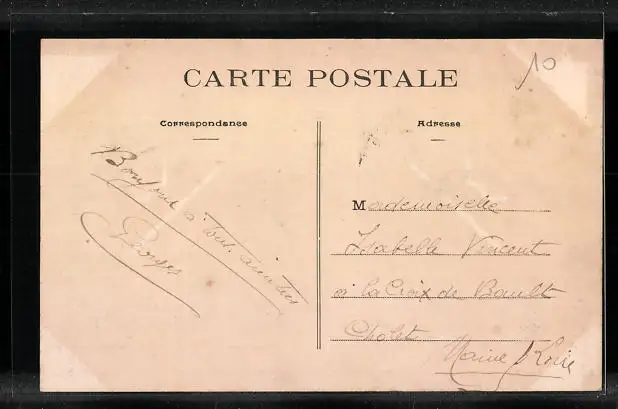 10
CARTE POSTALE
Correspondance
Adresse
Bonjour à tout
Georges
Mademoiselle
Isabelle Vincent
à la Croix de Bault
Cholet
Maine Loire